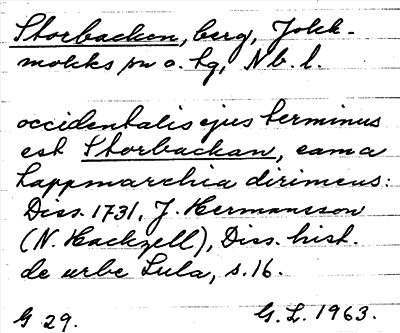 Storbacken, berg, Jokk-
mokks sn o. tg, Nb. l.
occidentalis ejus terminus
est Storbackan, eam a
Lappmarchia dirimens:
Diss. 1731, J. Hermansson
(N. Hackzell), Diss. hist.
de urbe Lula, s. 16.
G 29. G. L. 1963.